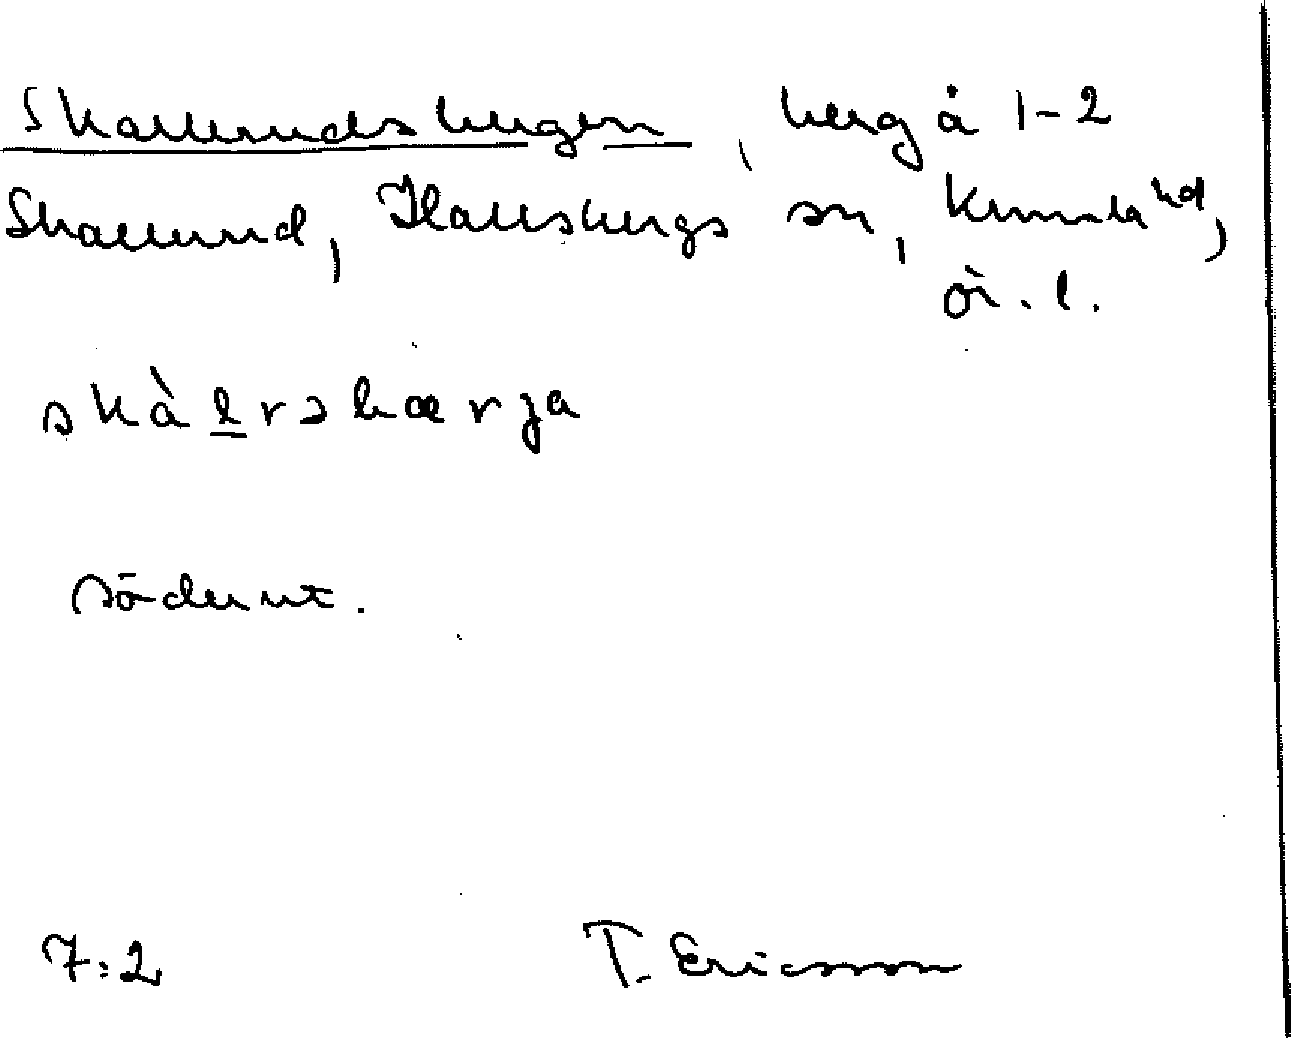 Skallerudsbergen, berg å 1-2
Skallerud, Hallsbergs sn, Kumla hd,
ör. l.
skàl̲rsbærja
söderut.
7:2 T. Ericsson